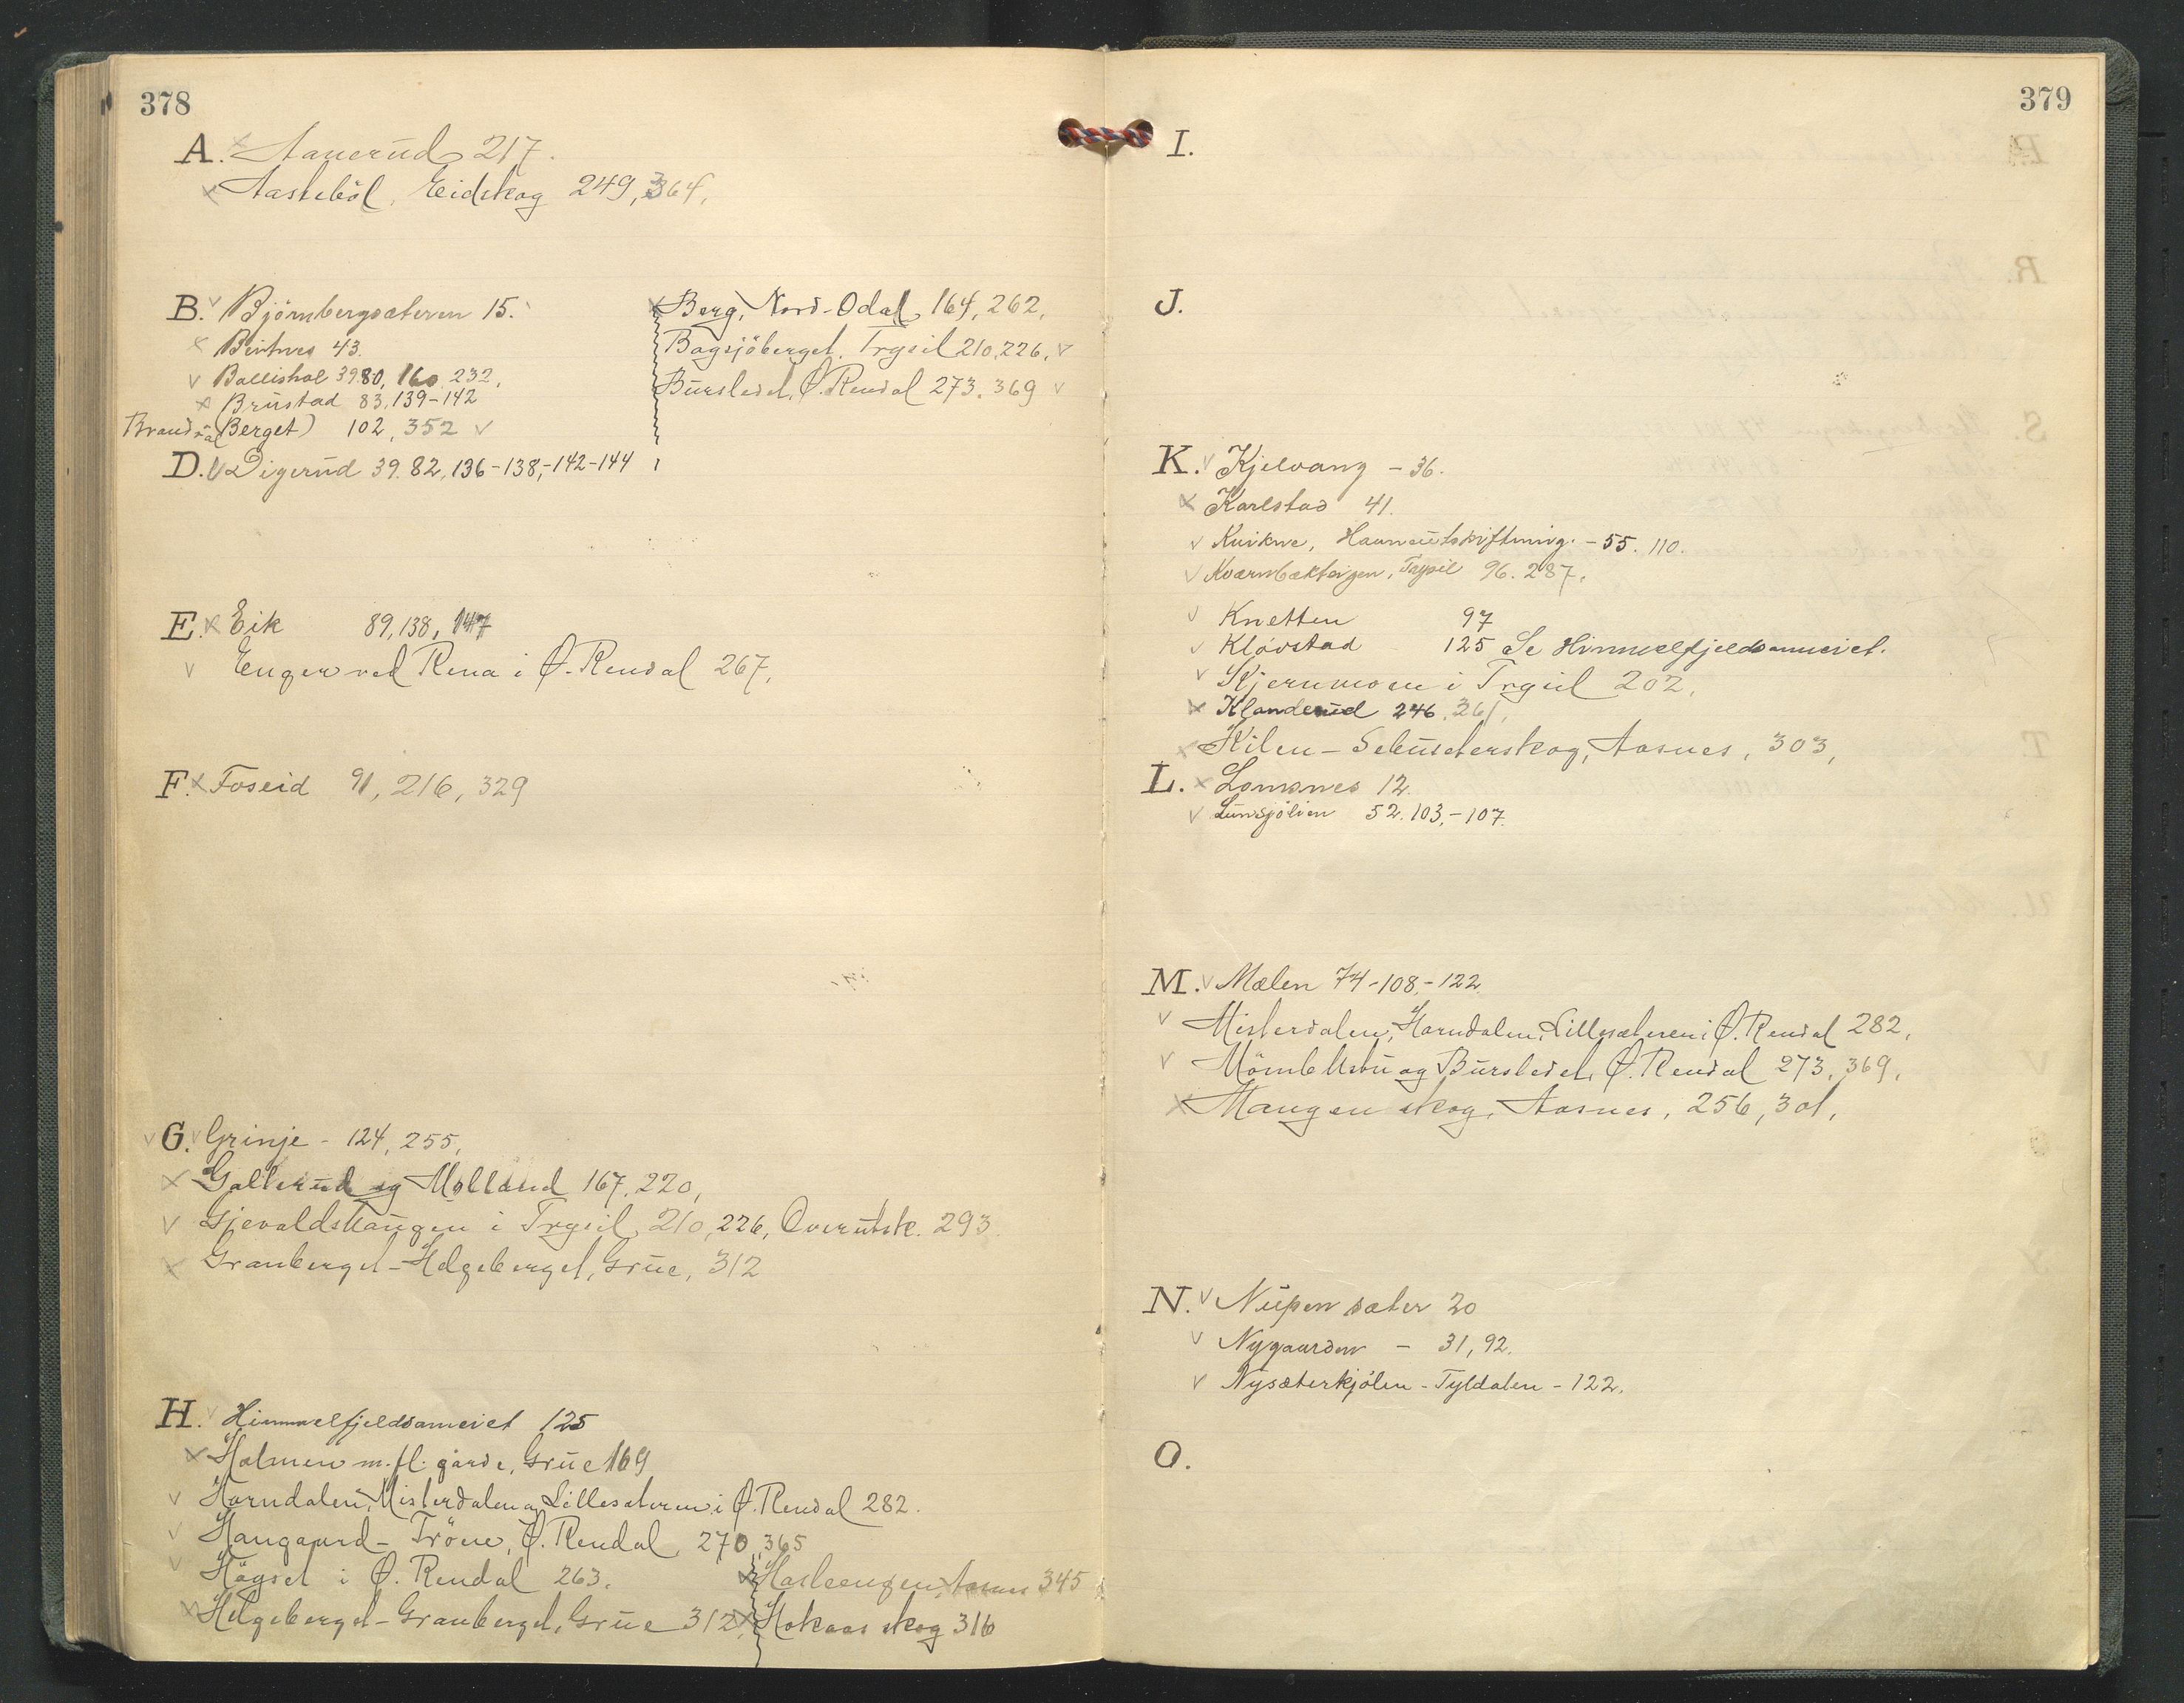 378
A. Aanerud 217.
Aastebøl, Eidskog 249, 364.
B. Bjørnbergsæteren 15.
43.
39 80, 160, 232,
Brustad 83, 139-142
(Berget) 102, 352
Berg, Nord-Odal 164, 262,
Bagsjöberget, Trysil 210, 226,
Bursledet, Ø. Rendal 273, 369
D. Digerud 39. 82, 136-138,-142-144
E. Eik 89, 138, 147
Enger ved Rena i Ø. Rendal 267,
F. Foseid 91, 216, 329
G. Grinje - 124, 255,
Gallerud og Molland 167, 220,
Gjevaldshaugen i Trysil, 210, 226, Overutsk. 293
Granberget-Helgeberget, Grue, 312
H. Himmelfjeldsameiet 125
Holmen m. fl. gårde, Grue 169
Harndalen, Misterdalen og Lillesæteren i Ø. Rendal 282.
Haugaard-Tröen, Ø. Rendal, 270, 365
Högset i Ø. Rendal 263.
Helgeberget-Granberget, Grue 312,
345
skog 316
379
I.
J.
K. Kjelvang - 36.
Karlstad 41.
Kvikne, Havneutskiftning. - 55. 110.
Trysil 96. 287,
Knetten 97
Kløvstad 125 Se Himmelfjeldsameiet.
Kjernmoen i Trysil 202,
Klanderud 246, 261,
Kilen - Aasnes, 303,
L. Lomsnes 12.
Lunsjølien 52. 103,-107.
M. Mælen 74-108,-122.
Misterdalen, Harndalen, Lillesæteren i Ø. Rendal 282,
og Bursledet, Ø. Rendal 273, 369,
Mangen skog, Aasnes, 256, 301,
N. Nupen sæter 20
Nygaarden - 31, 92.
Nysæterkjølen - Tyldalen - 122.
O.